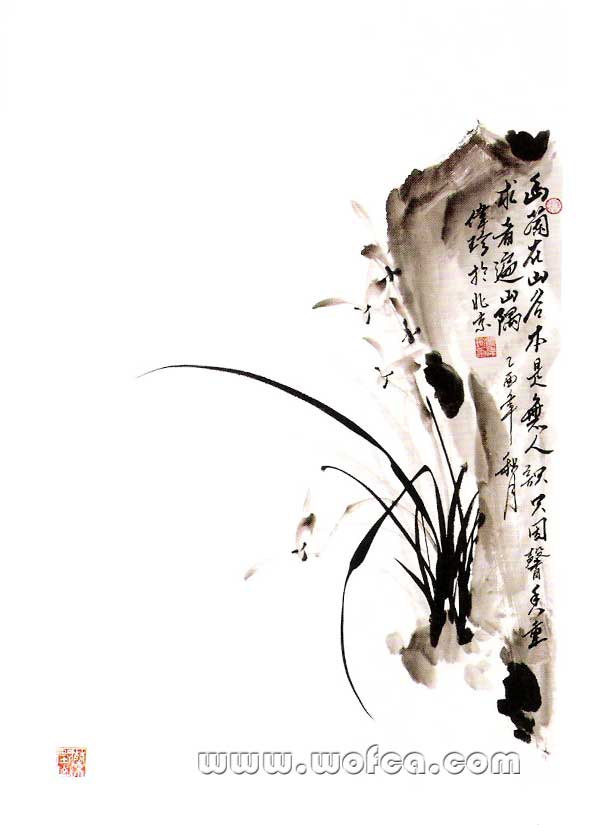 幽蘭在山谷本是無人識只因馨香重
求者遍山隅
乙酉年秋月
偉玲於北京
www.wofca.com